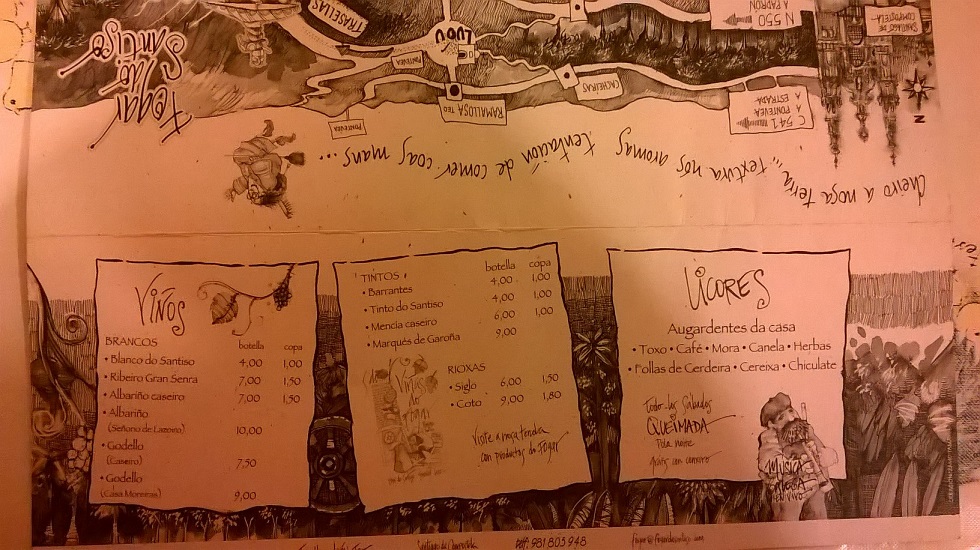 Fogar
do
Santiso
TRASELLAS
LUOU
PONTEVEA
RAMALLOSA TEO
CACHEIRAS
PONTEVEA
N 550
A PADRÓN
C 541
A PONTEVEA
A ESTRADA
SANTIAGO DE
COMPOSTELA
N
Cheiro a nosa terra... textura nos aromas tentación de comer coas mans...
VIÑOS
BRANCOS botella copa
• Blanco do Santiso 4,00 1,00
• Ribeiro Gran Senra 7,00 1,50
• Albariño caseiro 7,00 1,50
• Albariño
(Señorio de Lazoiro) 10,00
• Godello
(Caseiro) 7,50
• Godello
(Casa Moreiras) 9,00
TINTOS botella copa
• Barrantes 4,00 1,00
• Tinto do Santiso 4,00 1,00
• Mencia caseiro 6,00 1,00
• Marqués de Garoña 9,00
RIOXAS
• Siglo 6,00 1,50
• Coto 9,00 1,80
Viños
do
Fogar
Visite a nosa tenda
con productos do Fogar
LICORES
Augardentes da casa
• Toxo • Café • Mora • Canela • Herbas
• Follas de Cerdeira • Cereixa • Chiculate
Todos los Sábados
QUEIMADA
Pola noite
MÚSICA
Santiago de Compostela
telf: 981 805 948